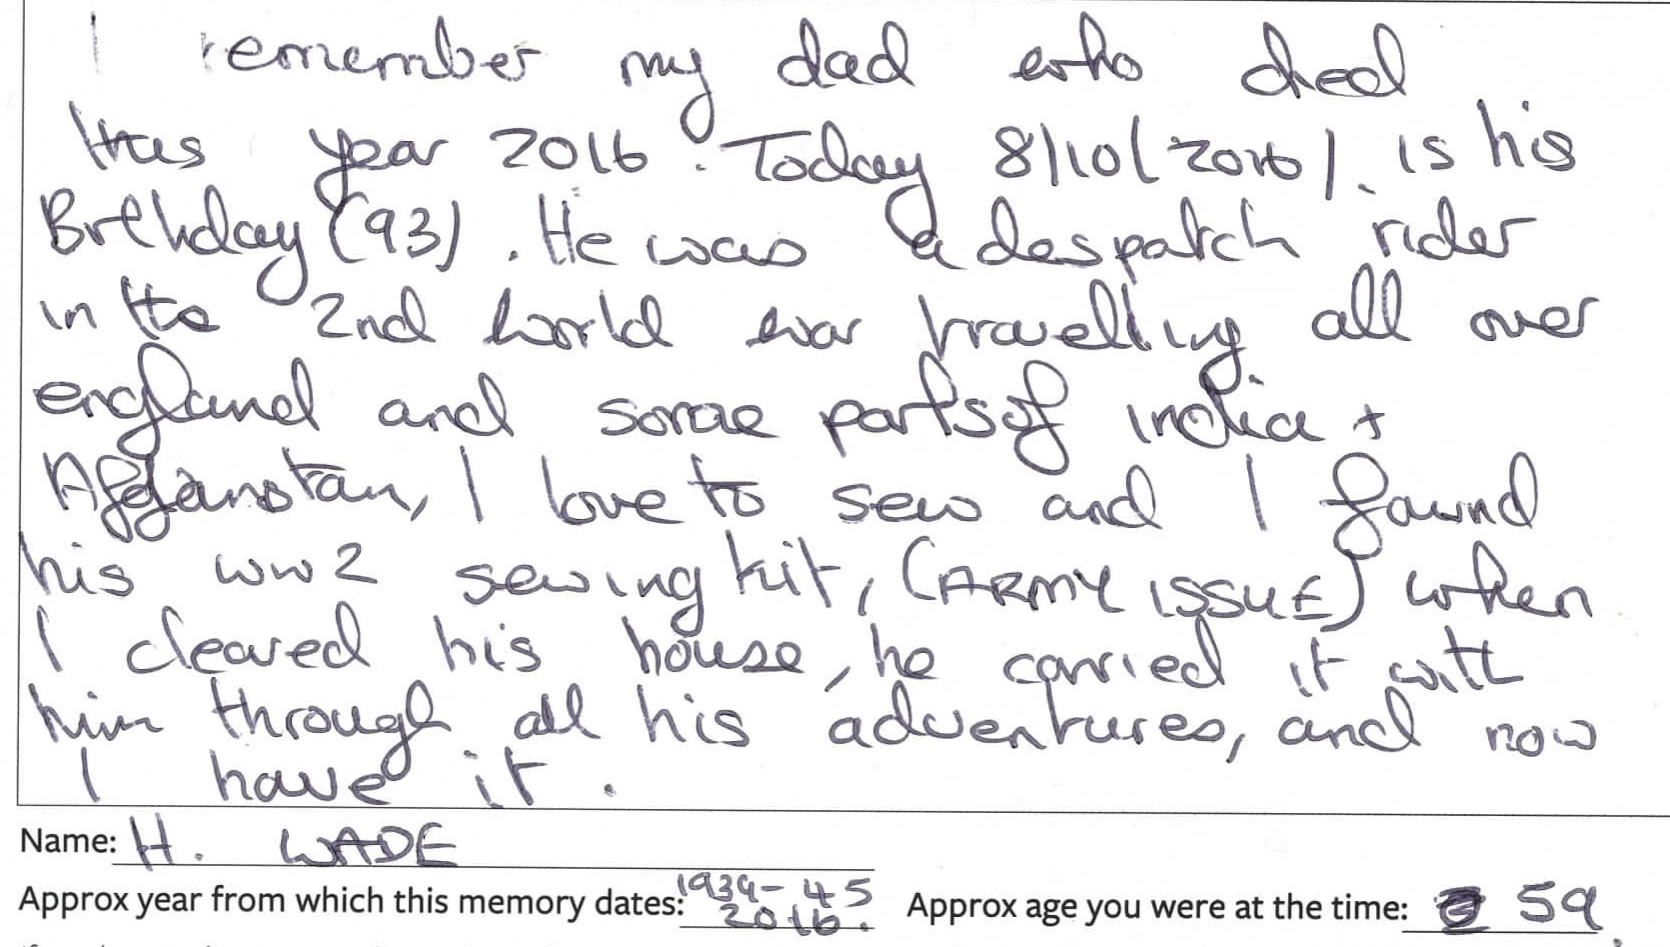 I remember my dad who died
this year 2016. Today 8/10/2016/. is his
Birthday (93). He was a despatch rider
in the 2nd world war travelling all over
england and some parts of india +
Affganstan, I love to sew and I found
his ww2 sewing kit, (ARMY ISSUE) when
I cleared his house, he carried it with
him through all his adventures, and now
I have it.
Name: H. WADE
Approx year from which this memory dates: 1939-45 2016. Approx age you were at the time: 59.